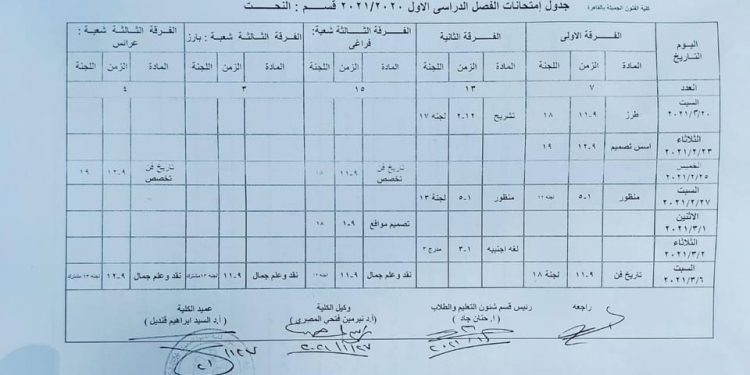 كلية الفنون الجميلة بالقاهرة
جدول إمتحانات الفصل الدراسى الاول ٢٠٢١/٢٠٢٠ قسم : النحت
اليوم التاريخ | الفرقة الاولى | الفرقة الثانية | الفرقة الثالثة شعبة: فراغى | الفرقة الثالثة شعبة : بارز | الفرقة الثالثة شعبة : عرائس
المادة | الزمن | اللجنة | المادة | الزمن | اللجنة | المادة | الزمن | اللجنة | المادة | الزمن | اللجنة | المادة | الزمن | اللجنة
العدد | ٧ | ١٣ | ١٥ | ٣ | ٤
السبت ٢٠٢١/٢/٢٠ | طرز | ٩-١١ | ١٨ | تشريح | ١٢-٢ | لجنه ١٧
الثلاثاء ٢٠٢١/٢/٢٣ | اسس تصميم | ٩-١٢ | ١٩
الخميس ٢٠٢١/٢/٢٥ | تاريخ فن تخصص | ٩-١١ | ١٨ | تاريخ فن تخصص | ٩-١٢ | ١٩
السبت ٢٠٢١/٢/٢٧ | منظور | ١-٥ | لجنه | منظور | ١-٥ | لجنة ١٣
الاثنين ٢٠٢١/٣/١ | تصميم مواقع | ٩-١ | ١٨
الثلاثاء ٢٠٢١/٣/٢ | لغه اجنبيه | ١-٣ | مدرج ٣
السبت ٢٠٢١/٣/٦ | تاريخ فن | ٩-١١ | لجنة ١٨ | نقد وعلم جمال | ٩-١١ | لجنه | نقد وعلم جمال | ٩-١١ | لجنه ١٣ مشترك | نقد وعلم جمال | ٩-١٢ | لجنه ١٣ مشترك
راجعه
رئيس قسم شئون التعليم والطلاب
( ا. حنان جاد )
وكيل الكلية
( أ.د نيرمين فتحى المصرى )
عميد الكلية
( أ.د السيد ابراهيم قنديل )
٢٠٢١/١/٢٧